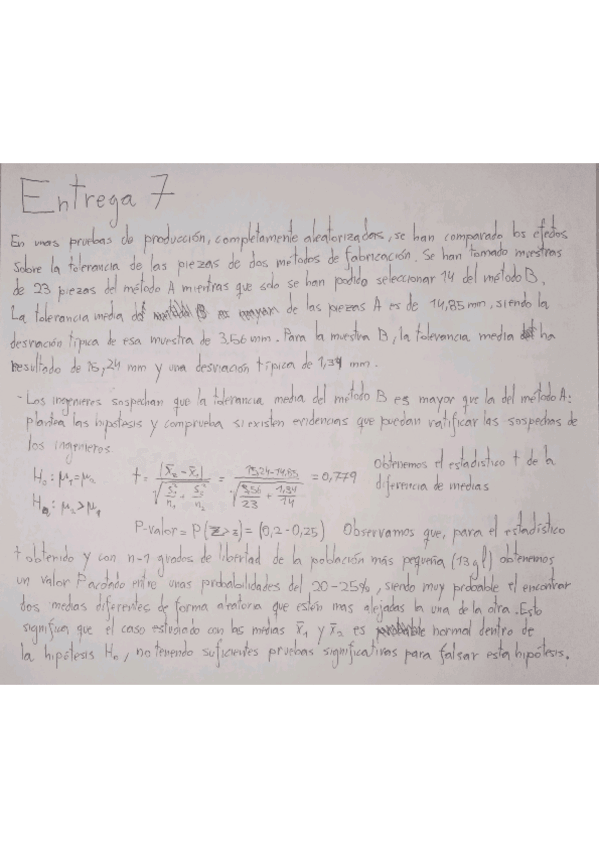 Entrega 7
En unas pruebas de producción, completamente aleatorizadas, se han comparado los efectos
sobre la tolerancia de las piezas de dos metodos de fabricación. Se han tomado muestras
de 23 piezas del método A mientras que solo se han podido seleccionar 14 del método B.
La tolerancia media de las piezas A es de 14,85 mm, siendo la
desviación típica de esa muestra de 3,56 mm. Para la muestra B, la tolerancia media ha
resultado de 15,24 mm y una desviación típica de 1,34 mm.
- Los ingenieros sospechan que la tolerancia media del método B es mayor que la del método A:
plantea las hipótesis y comprueba si existen evidencias que puedan ratificar las sospechas de
los ingenieros.
H₀: μ₁=μ₂ t = |x̄₂ - x̄₁| / √(s₁²/n₁ + s₂²/n₂) = 15,24-14,85 / √(3,56/23 + 1,34/14) = 0,779 Obtenemos el estadístico t de la
μ₂>μ₁ diferencia de medias
P-valor = P(z>z) = (0,2-0,25) Observamos que, para el estadístico
t obtenido y con n-1 grados de libertad de la población más pequeña (13 gl) obtenemos
un valor P acotado entre unas probabilidades del 20-25%, siendo muy probable el encontrar
dos medias diferentes de forma aleatoria que estén mas alejadas la una de la otra. Esto
significa que el caso estudiado con las medias x̄₁ y x̄₂ es normal dentro de
la hipótesis H₀, no teniendo suficientes pruebas significativas para falsar esta hipótesis.